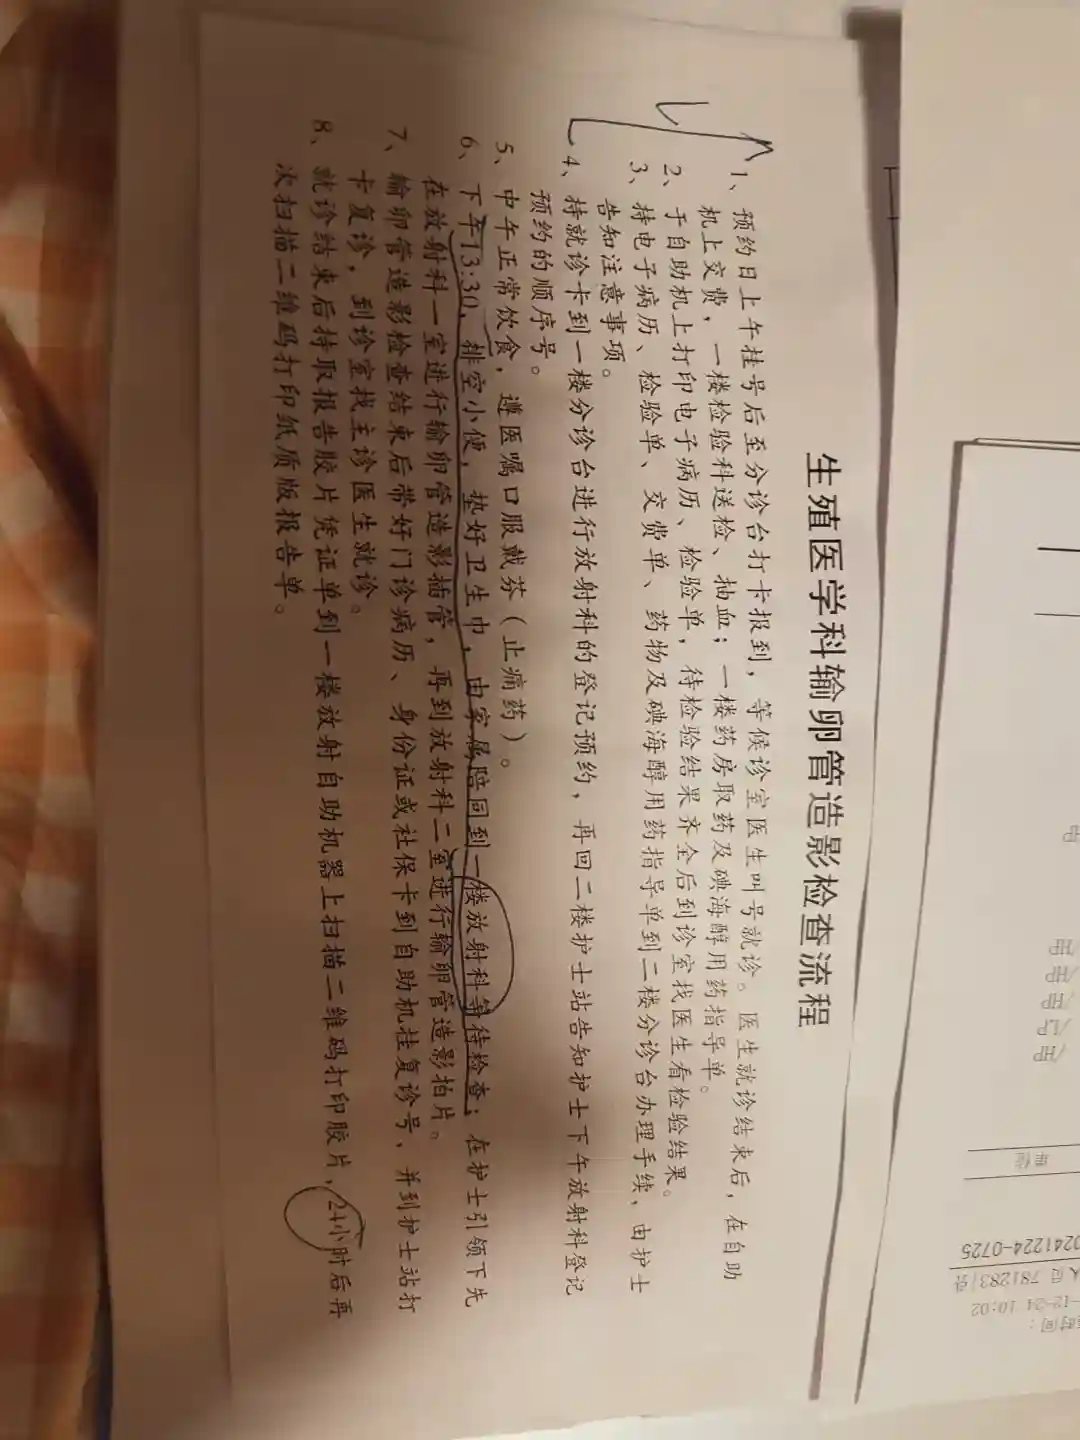 生殖医学科输卵管造影检查流程
1、预约日上午挂号后至分诊台打卡报到，等候诊室医生叫号就诊。医生就诊结束后，在自助
机上交费，一楼检验科送检、抽血；一楼药房取药及碘海醇用药指导单。
2、于自助机上打印电子病历、检验单，待检验结果齐全后到诊室找医生看检验结果。
3、持电子病历、检验单、交费单、药物及碘海醇用药指导单到二楼分诊台办理手续，由护士
告知注意事项。
4、持就诊卡到一楼分诊台进行放射科的登记预约，再回二楼护士站告知护士下午放射科登记
预约的顺序号。
5、中午正常饮食，遵医嘱口服戴芬（止痛药）。
6、下午13:30，排空小便，垫好卫生巾，由家属陪同到一楼放射科等待检查；在护士引领下先
在放射科一室进行输卵管造影插管，再到放射科二室进行输卵管造影拍片。
7、输卵管造影检查结束后带好门诊病历、身份证或社保卡到自助机挂复诊号，并到护士站打
卡复诊，到诊室找主诊医生就诊。
8、就诊结束后持取报告胶片凭证单到一楼放射自助机器上扫描二维码打印胶片，24小时后再
次扫描二维码打印纸质版报告单。
/HP
/HP
/HP
/LP
/HP
单位
0241224-0725
781283
-12-24 10:02
时间：